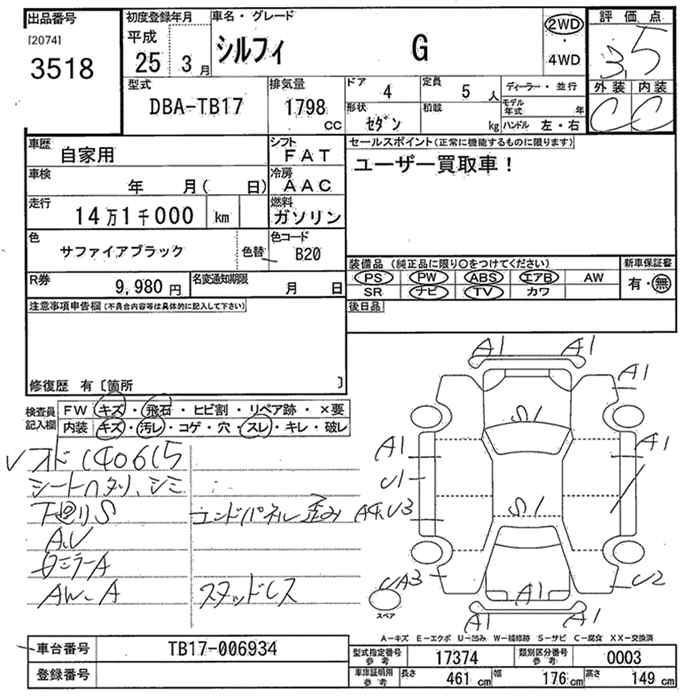 出品番号
[2074]
3518
初度登録年月
平成
25 3月
車名・グレード
シルフィ G
2WD
・
4WD
評価点
3.5
外装 内装
C C
型式
DBA-TB17
排気量
1798
CC
ドア 4
定員 5人
形状 セダン
積載 kg
ディーラー・並行
モデル年式 年
ハンドル 左・右
車歴 自家用
シフト FAT
車検 年 月( 日)
冷房 AAC
走行 14万1千000 km
燃料 ガソリン
色 サファイアブラック
色替
色コード B20
R券 9,980円
名変通知期限 月 日
セールスポイント(正常に機能するものに限ります)
ユーザー買取車!
装備品(純正品に限り○をつけてください)
新車保証書
PS PW ABS エアB AW
SR ナビ TV カワ
有・無
後日品
注意事項申告欄(不具合内容等は具体的に記入して下さい)
修復歴 有〔箇所 〕
検査員記入欄
FW キズ・飛石・ヒビ割・リペア跡・×要
内装 キズ・汚レ・コゲ・穴・スレ・キレ・破レ
140615
シートハタリ、シミ
下廻りS
エンドパネル歪み
A.U
ミラーA
AW-A
スタッドレス
A1 A1
A1
S1
A1 A1
U1
S1
U3
A3
U2
A1
A1 A1
スペア
A-キズ E-エクボ U-凹み W-補修跡 S-サビ C-腐食 XX-交換済
車台番号 TB17-006934
登録番号
型式指定番号 参考 17374
類別区分番号 参考 0003
車庫証明用 参考 長さ 461cm 幅 176cm 高さ 149cm